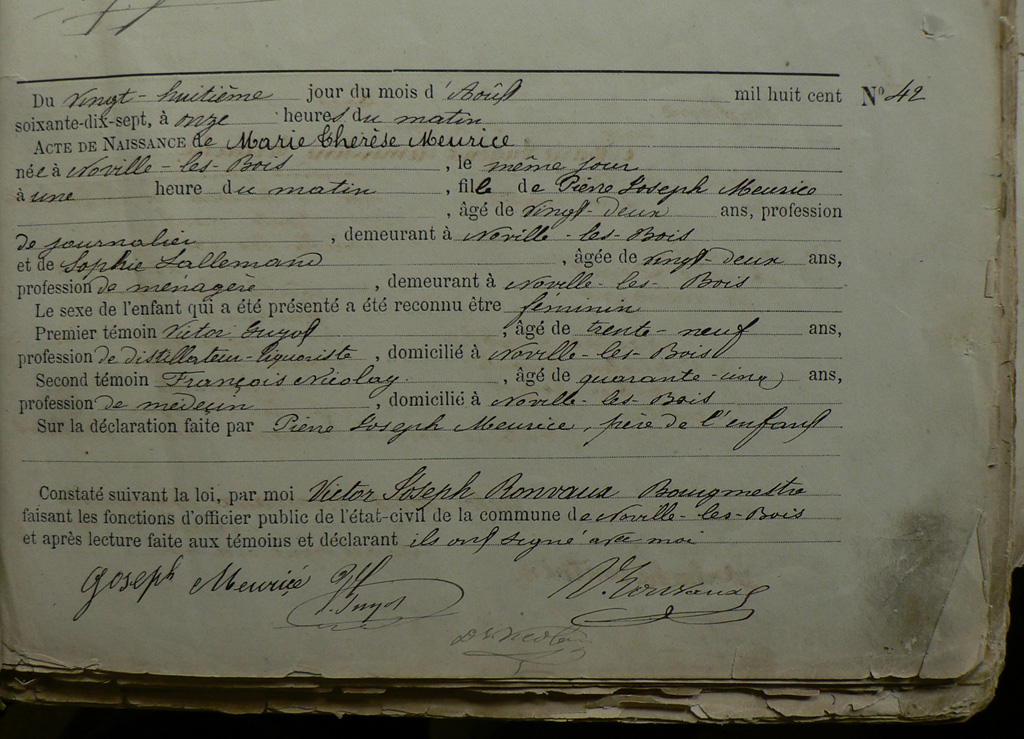 Du vingt-huitième jour du mois d'Août mil huit cent N° 42
soixante-dix-sept, à onze heures du matin
ACTE DE NAISSANCE de Marie Thérèse Meurice
née à Noville-les-Bois, le même jour
à une heure du matin, fille de Pierre Joseph Meurice
, âgé de vingt-deux ans, profession
de journalier, demeurant à Noville-les-Bois
et de Sophie Lallemand, âgée de vingt-deux ans,
profession de ménagère, demeurant à Noville-les-Bois
Le sexe de l'enfant qui a été présenté a été reconnu être féminin
Premier témoin Victor Guyot, âgé de trente-neuf ans,
profession de distillateur-liquoriste, domicilié à Noville-les-Bois
Second témoin François Nicolay, âgé de quarante-cinq ans,
profession de médecin, domicilié à Noville-les-Bois
Sur la déclaration faite par Pierre Joseph Meurice, père de l'enfant
Constaté suivant la loi, par moi Victor Joseph Ronvaux Bourgmestre
faisant les fonctions d'officier public de l'état-civil de la commune de Noville-les-Bois
et après lecture faite aux témoins et déclarant ils ont signé avec moi
Joseph Meurice V. Guyot V. Ronvaux
Dr Nicolay